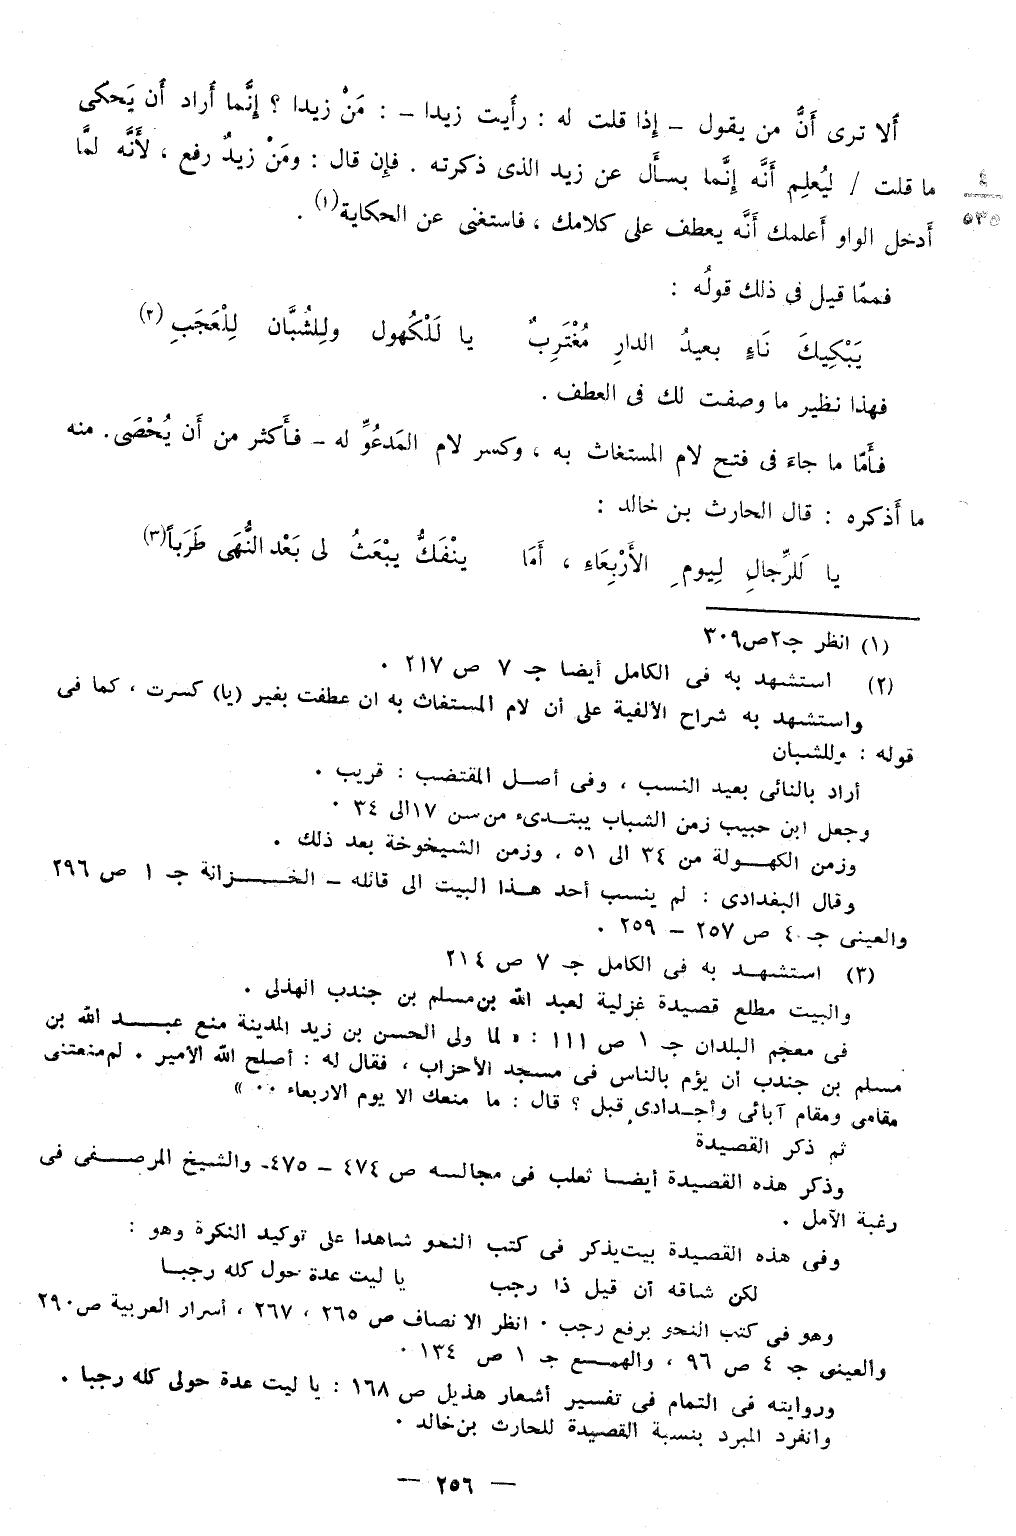 ألا ترى أَنَّ من يقول – إِذا قلت له : رأَيت زيدا – : مَنْ زيدا ؟ إِنَّما أَراد أَن يَحكى
ما قلت / لِيُعلِم أَنَّه إِنَّما يسأَل عن زيد الذى ذكرته . فإِن قال : ومَنْ زيدٌ رفع ، لأَنَّه لمَّا
٤
٥٣٥
أَدخل الواو أَعلمك أَنَّه يعطف على كلامك ، فاستغنى عن الحكاية(١) .
فممّا قيل فى ذلك قولُه :
يَبْكِيكَ نَاءٍ بعيدُ الدارِ مُغْتَرِبٌ يا لَلْكُهول ولِلشُبَّان لِلْعَجَبِ(٢)
فهذا نظير ما وصفت لك فى العطف .
فأَمّا ما جاءَ فى فتح لام المستغاث به ، وكسر لام المَدعُوِّ له – فأَكثر من أَن يُحْصَى. منه
ما أَذكره : قال الحارث بن خالد :
يا لَلرِّجالِ لِيومِ الأَرْبِعَاءِ ، أَمَا ينْفَكُّ يبْعَثُ لى بَعْد النُّهَى طَرَباً(٣)
(١) انظر جـ٢ص٣٠٩
(٢) استشهد به فى الكامل أيضا جـ ٧ ص ٢١٧ .
واستشهد به شراح الألفية على أن لام المستغاث به ان عطفت بغير (يا) كسرت ، كما فى
قوله : وللشبان
أراد بالنائى بعيد النسب ، وفى أصل المقتضب : قريب .
وجعل ابن حبيب زمن الشباب يبتدىء من سن ١٧ الى ٣٤ .
وزمن الكهولة من ٣٤ الى ٥١ ، وزمن الشيخوخة بعد ذلك .
وقال البغدادى : لم ينسب أحد هذا البيت الى قائله – الخزانة جـ ١ ص ٢٩٦
والعينى جـ ٤ ص ٢٥٧ – ٢٥٩ .
(٣) استشهد به فى الكامل جـ ٧ ص ٢١٤
والبيت مطلع قصيدة غزلية لعبد الله بن مسلم بن جندب الهذلى .
فى معجم البلدان جـ ١ ص ١١١ : « لما ولى الحسن بن زيد المدينة منع عبد الله بن
مسلم بن جندب أن يؤم بالناس فى مسجد الأحزاب ، فقال له : أصلح الله الأمير . لم منعتنى
مقامى ومقام آبائى وأجدادى قبل ؟ قال : ما منعك الا يوم الاربعاء .. »
ثم ذكر القصيدة
وذكر هذه القصيدة أيضا ثعلب فى مجالسه ص ٤٧٤ – ٤٧٥، والشيخ المرصفى فى
رغبة الآمل .
وفى هذه القصيدة بيت يذكر فى كتب النحو شاهدا على توكيد النكرة وهو :
لكن شاقه أن قيل ذا رجب يا ليت عدة حول كله رجبا
وهو فى كتب النحو برفع رجب . انظر الانصاف ص ٢٦٥ ، ٢٦٧ ، أسرار العربية ص ٢٩٠
والعينى جـ ٤ ص ٩٦ ، والهمع جـ ١ ص ١٣٤ .
وروايته فى التمام فى تفسير أشعار هذيل ص ١٦٨ : يا ليت عدة حولى كله رجبا .
وانفرد المبرد بنسبة القصيدة للحارث بن خالد .
— ٢٥٦ —